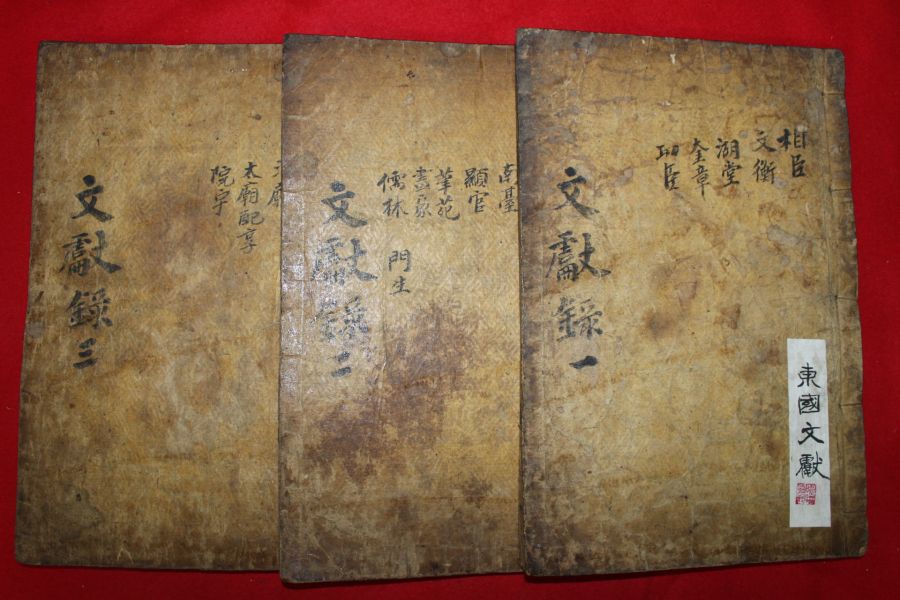 東國文獻
相臣
文衡
湖堂
奎章
功臣
文獻錄一
南臺
顯官
筆苑
畫家
儒林 門生
文獻錄二
太廟配享
院宇
文獻錄三